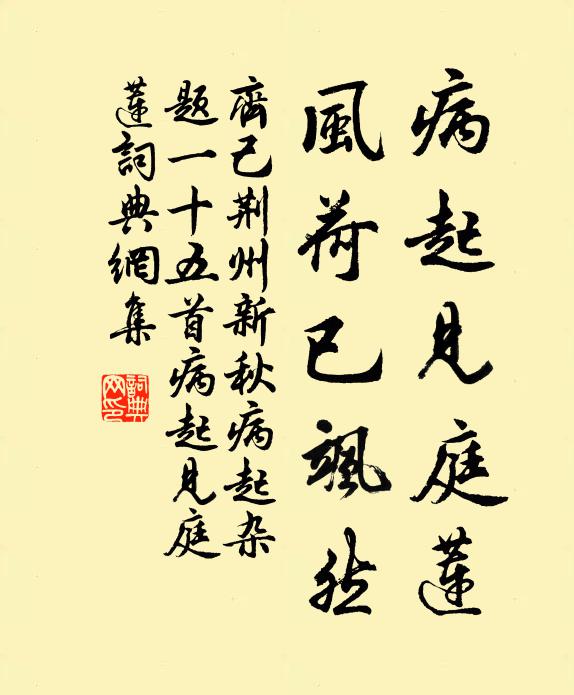 病起見庭蓮
風荷已颯然
齊己荆州新秋病起杂
题一十五首病起見庭
蓮詞典網集
詞典
网印